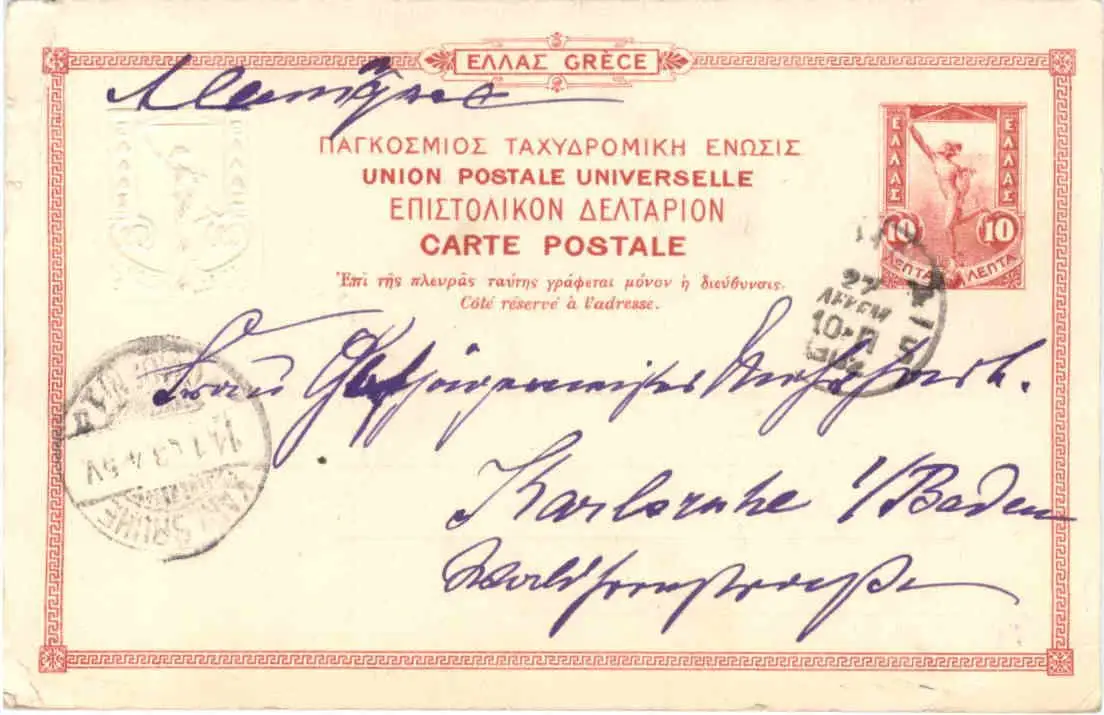 ΕΛΛΑΣ GRÈCE
Allemagne
ΠΑΓΚΟΣΜΙΟΣ ΤΑΧΥΔΡΟΜΙΚΗ ΕΝΩΣΙΣ
UNION POSTALE UNIVERSELLE
ΕΠΙΣΤΟΛΙΚΟΝ ΔΕΛΤΑΡΙΟΝ
CARTE POSTALE
Ἐπὶ τῆς πλευρᾶς ταύτης γράφεται μόνον ἡ διεύθυνσις.
Côté réservé à l'adresse.
ΕΛΛΑΣ ΕΛΛΑΣ
10 10
ΛΕΠΤΑ ΛΕΠΤΑ
27
ΔΕΚΕΜ
Frau
Karlsruhe i/Baden
14.1
KARLSRUHE